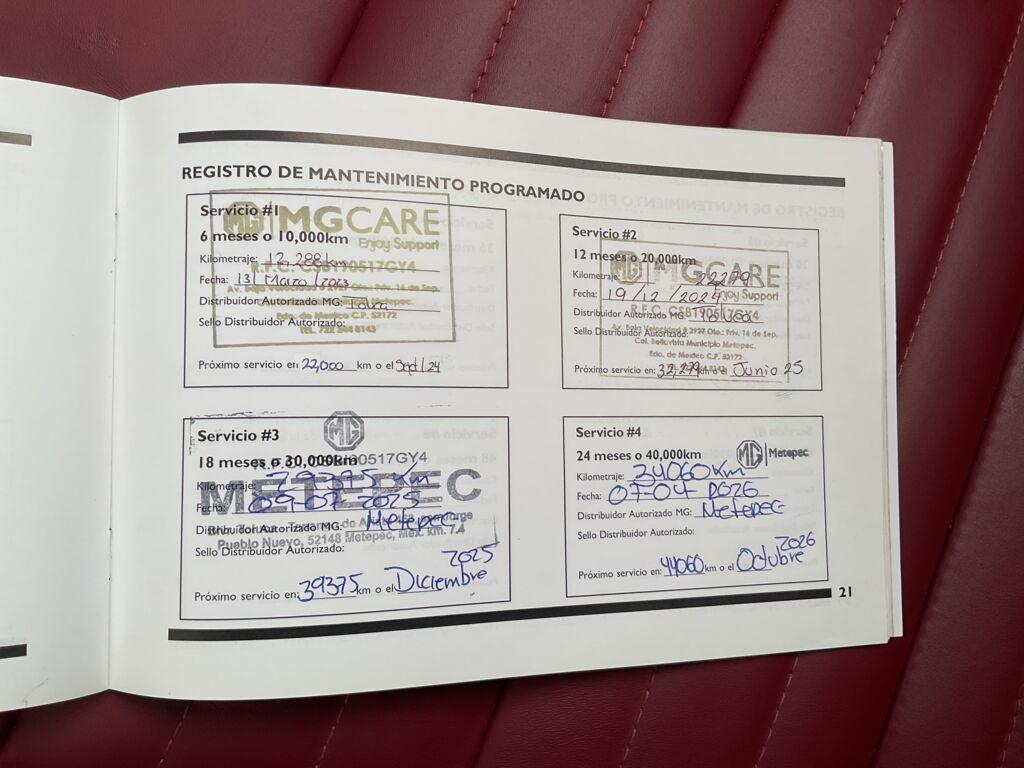 REGISTRO DE MANTENIMIENTO PROGRAMADO
Servicio #1
MG MGCARE
Enjoy Support
6 meses o 10,000km
Kilometraje: 12,288km
R.F.C. CSB190517GY4
Fecha: 13/Marzo/2023
Av. Baja Velocidad # 2927 Oto.: Priv. 16 de Sep.
Distribuidor Autorizado MG: Toluca
Edo. de Mexico C.P. 52172
Sello Distribuidor Autorizado:
TEL. 722 264 8143
Próximo servicio en: 22,000 km o el Sept/24
Servicio #2
12 meses o 20,000km
MG MGCARE
Kilometraje: 22279
Enjoy Support
Fecha: 19/12/2024
R.F.C. CSB190517GY4
Distribuidor Autorizado MG: Toluca
Av. Baja Velocidad # 2927 Oto.: Priv. 16 de Sep.
Sello Distribuidor Autorizado:
Col. Bellavista Municipio Metepec.
Edo. de Mexico C.P. 52172
Próximo servicio en: 32,279 km o el Junio 25
MG
Servicio #3
18 meses o 30,000km
190517GY4
Kilometraje: 29375 Km
METEPEC
Fecha: 09-07-2025
Distribuidor Autorizado MG: Metepec
Pueblo Nuevo, 52148 Metepec, Méx. km. 7.4
Sello Distribuidor Autorizado:
Próximo servicio en: 39375 km o el Diciembre 2025
Servicio #4
24 meses o 40,000km
MG Metepec
Kilometraje: 34060 Km
Fecha: 07-04 2026
Distribuidor Autorizado MG: Metepec
Sello Distribuidor Autorizado:
Próximo servicio en: 44060 km o el Octubre 2026
21